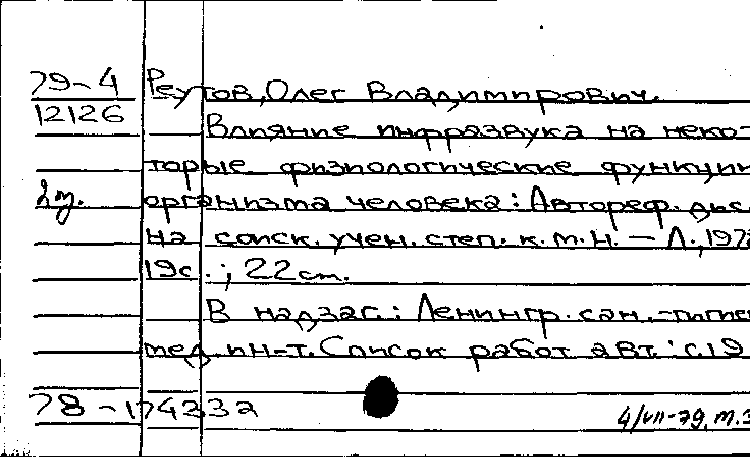 79-4
12126
Реутов, Олег Владимирович.
Влияние инфразвука на неко-
торые физиологические функции
2 эз.
организма человека: Автореф. дис.
на соиск. учен. степ. к. м. н. — Л., 197
19с.; 22 см.
В надзаг.: Ленингр. сан.-гигиен
мед. ин-т. Список работ авт.: с. 19
78-174332
4/VII-79, т.